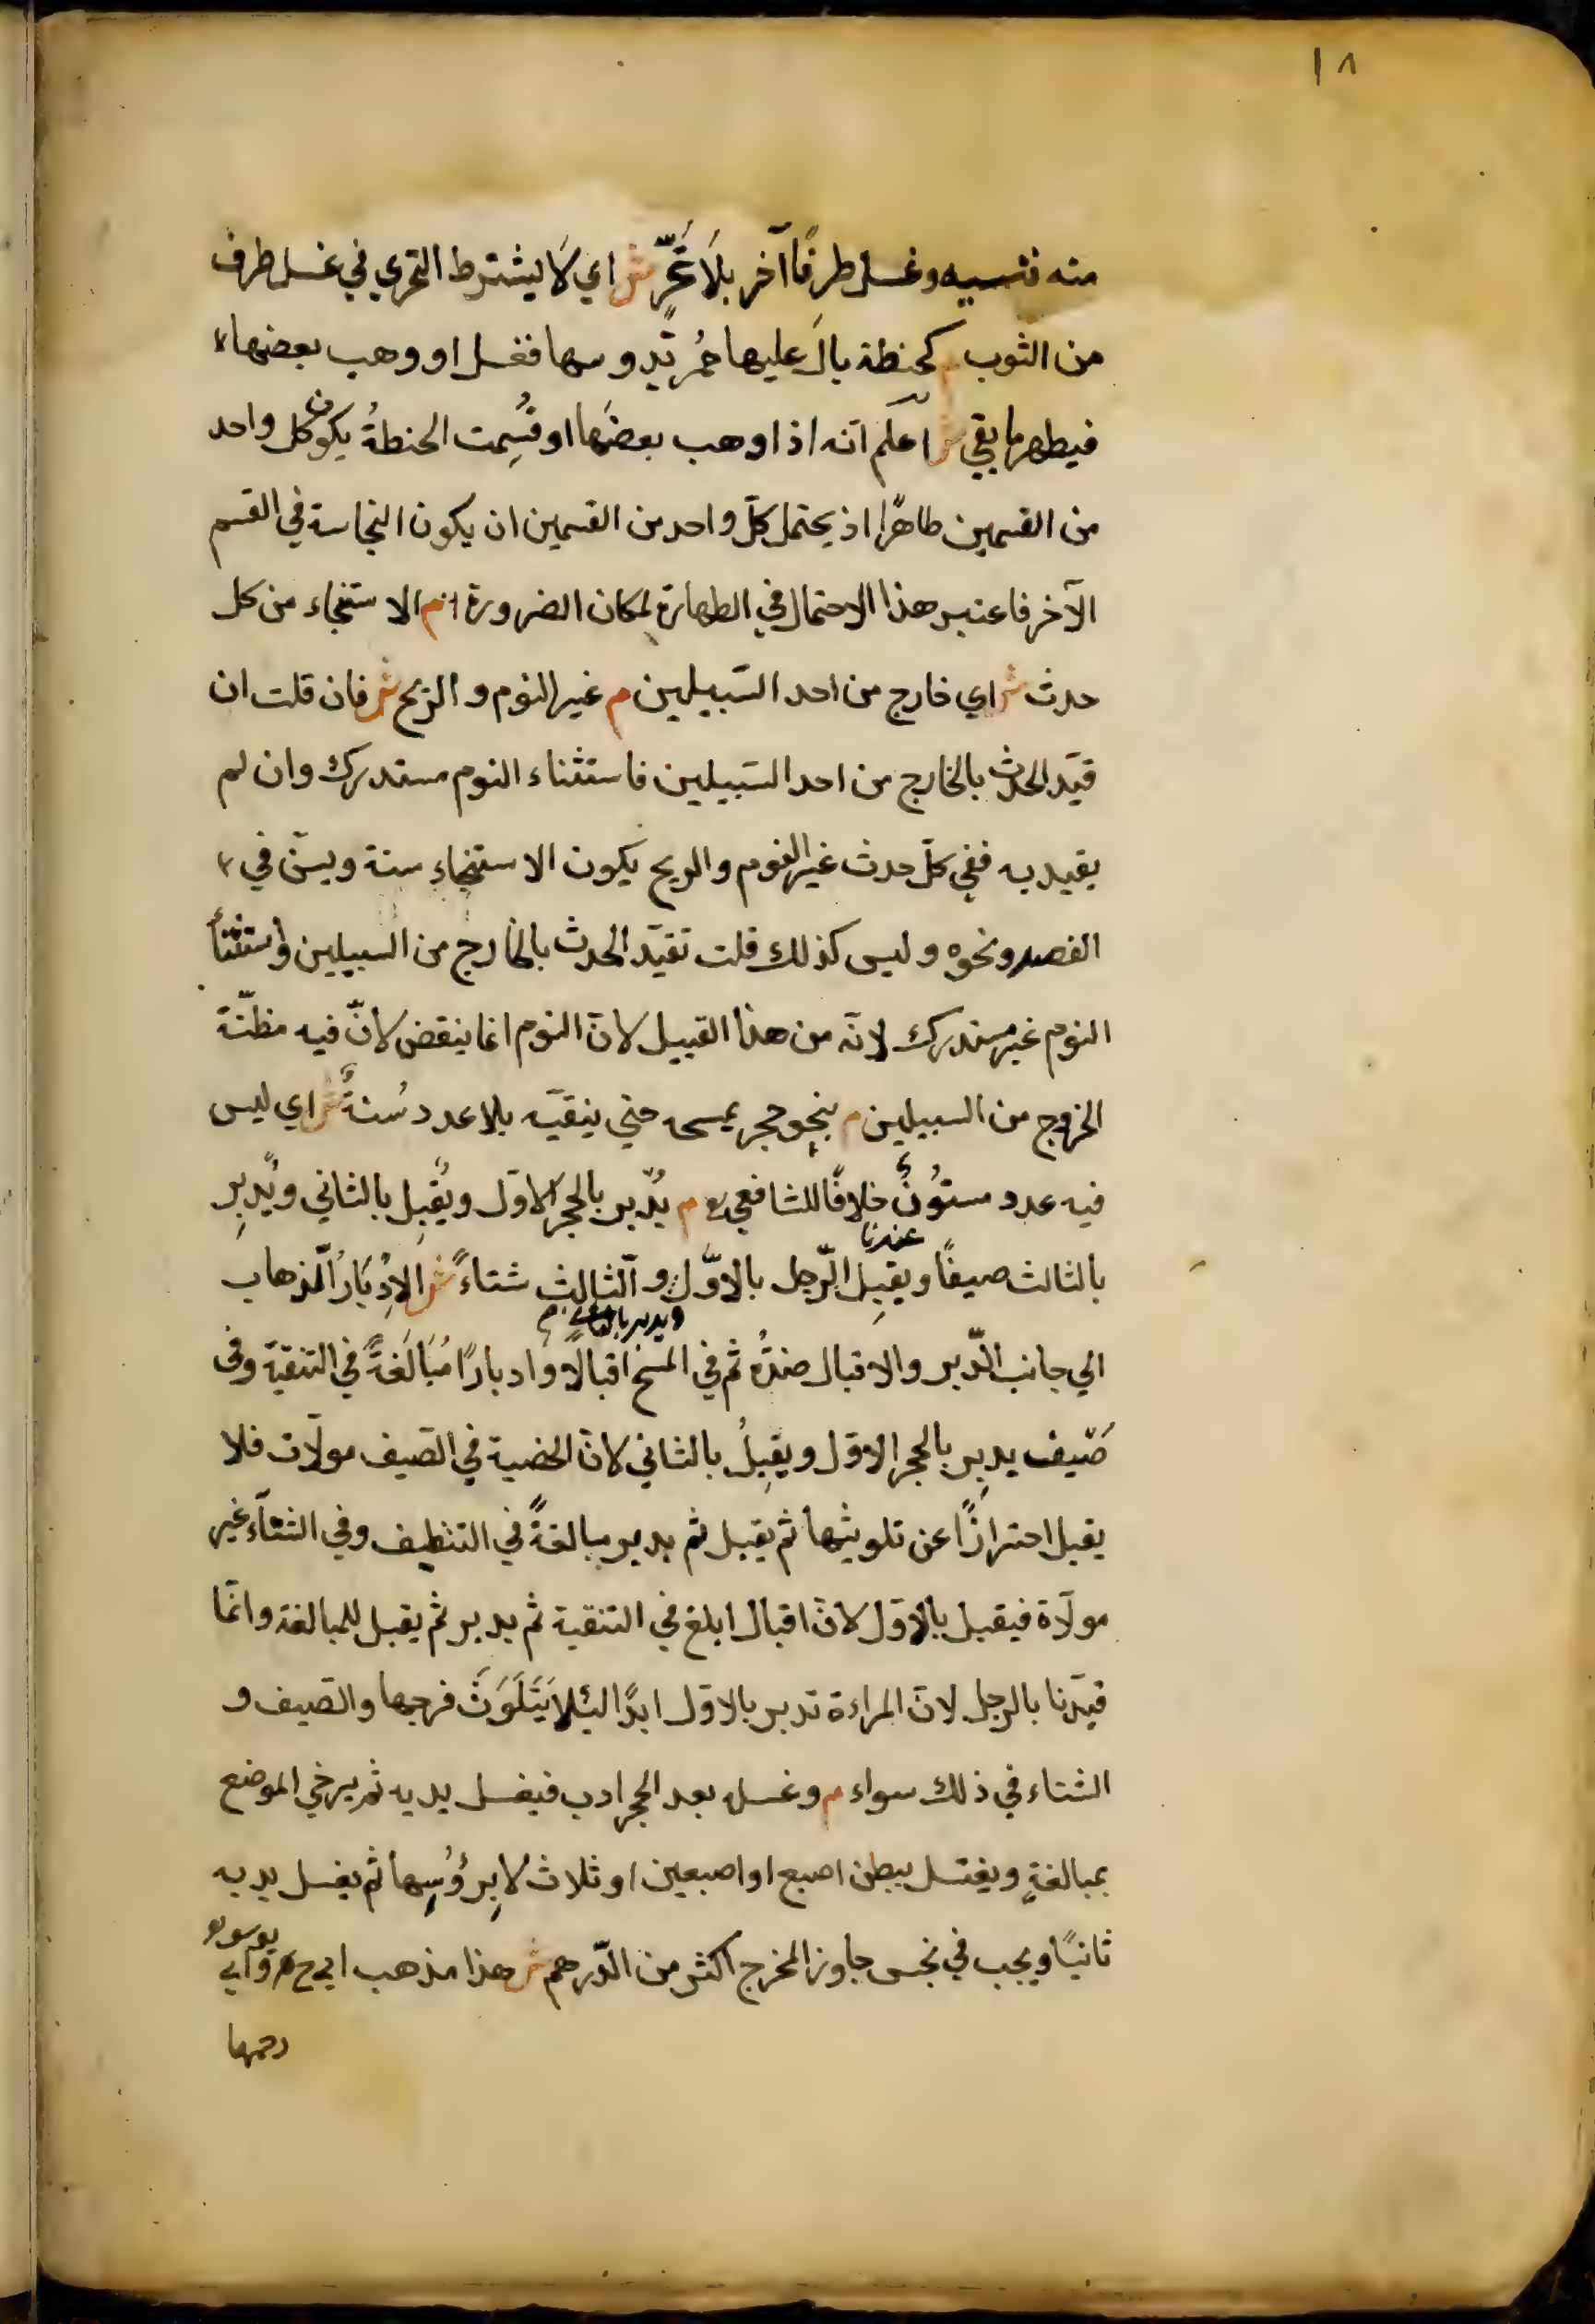 ١٨
منه فنسيه وغسل طرفًا آخر بلَا تَحَرٍّ ش اي لَا يشترط التحري في غسل طرف
من الثوب م كحنطة بالَ عليها حُمُر تدوسها فغسل او وهب بعضها
فيطهر ما بقي ش اعلم انّه اذا وهب بعضَها او قُسِمت الحنطةُ يكون كل واحد
من القسمين طاهرًا اذ يحتمل كلّ واحد من القسمين ان يكون النجاسة في القسم
الآخر فاعتبر هذا الاحتمال في الطهارة لمكان الضرورة م الاستنجاء من كل
حدث ش اي خارج من احد السّبيلين م غير النوم و الريح ش فان قلت ان
قيّد الحدث بالخارج من احد السّبيلين فاستثناء النوم مستدرك وان لم
يقيد به ففي كلّ حدث غير النوم والريح يكون الاستنجاء سنة ويسنّ في
الفصد ونحوه وليس كذلك قلت تقيّد الحدث بالخارج من السبيلين واستثناء
النوم غير مستدرك لانّه من هذا القبيل لانّ النوم انما ينقض لانّ فيه مظنّة
الخروج من السبيلين م بنحو حجر يمسحه حتي ينقيّه بلا عدد سُنةٌ ش اي ليس
فيه عدد مسنُونٌ عندنا خلافًا للشافعي م يُدْبر بالحجر الاوّل ويُقبِل بالثاني ويُدبِر
بالثالث صيفًا ويقبِل الرّجل بالاوّل و الثّالث ويدبر بالثاني شتاءً ش الاِدْبَارُ الذهاب
الي جانب الدّبر والاقبال ضدُّه ثم في المسح اقبالًا وادبارًا مُبَالَغةً في التنقية وفى
صَيف يدبِر بالحجر الاوّل ويقبِلُ بالثاني لانّ الخصية في الصّيف مولّات فلا
يقبل احترازًا عن تلويثها ثم يقبل ثم يدبر مبالغةً في التنظيف وفي الشتآء غير
مولّاة فيقبل بالاوّل لانّ اقبال ابلغ في التنقية ثم يدبر ثم يقبل للمبالغة وانّما
قيّدنا بالرجل لانّ المراءة تدبر بالاوّل ابدًا لئلا يَتَلَوَثَ فرجها والصّيف و
الشتاء في ذلك سواء م وغسله بعد الحجر ادب فيغسل يديه ثم يرخي الموضع
بمبالغةٍ ويغتسل ببطن اصبع او اصبعين او ثلاث لا بِرؤُسِها ثم يغسل يديه
ثانيًا ويجب في نجس جاوز المخرج اكثر من الدّرهم ش هذا مذهب ابي ح وابي يوسف
رحمها